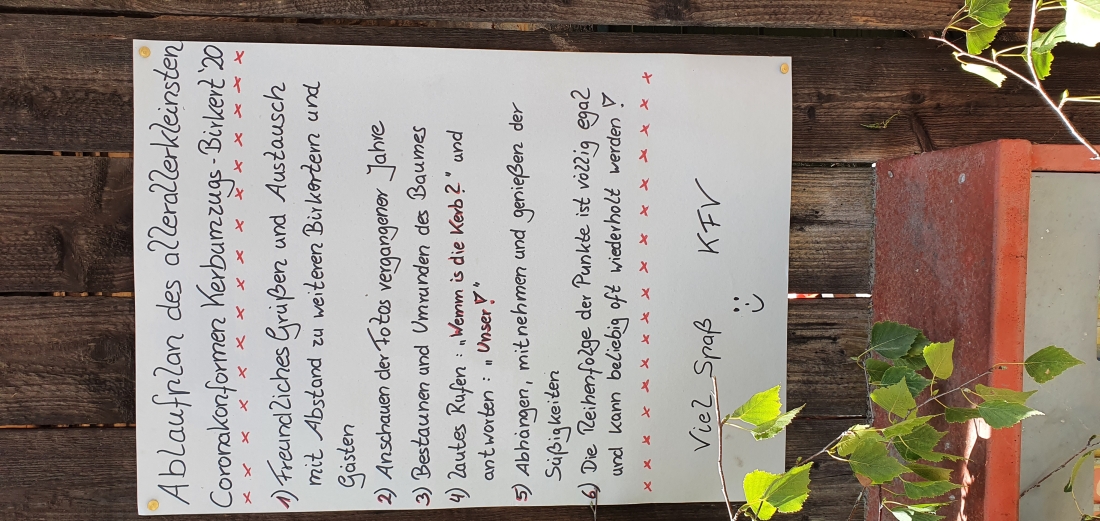 Ablaufplan des allerallerkleinsten
Coronakonformen Kerbumzugs-Birkert '20
x x x x x x x x x x x x x x x x x x x x
1) Freundliches Grüßen und Austausch
mit Abstand zu weiteren Birkertern und
Gästen
2) Anschauen der Fotos vergangener Jahre
3) Bestaunen und Umrunden des Baumes
4) Lautes Rufen: „Wemm is die Kerb?" und
antworten: „Unser!"
5) Abhängen, mitnehmen und genießen der
Süßigkeiten
6) Die Reihenfolge der Punkte ist völlig egal
und kann beliebig oft wiederholt werden!
x x x x x x x x x x x x x x x x x x
Viel Spaß KFV
:)